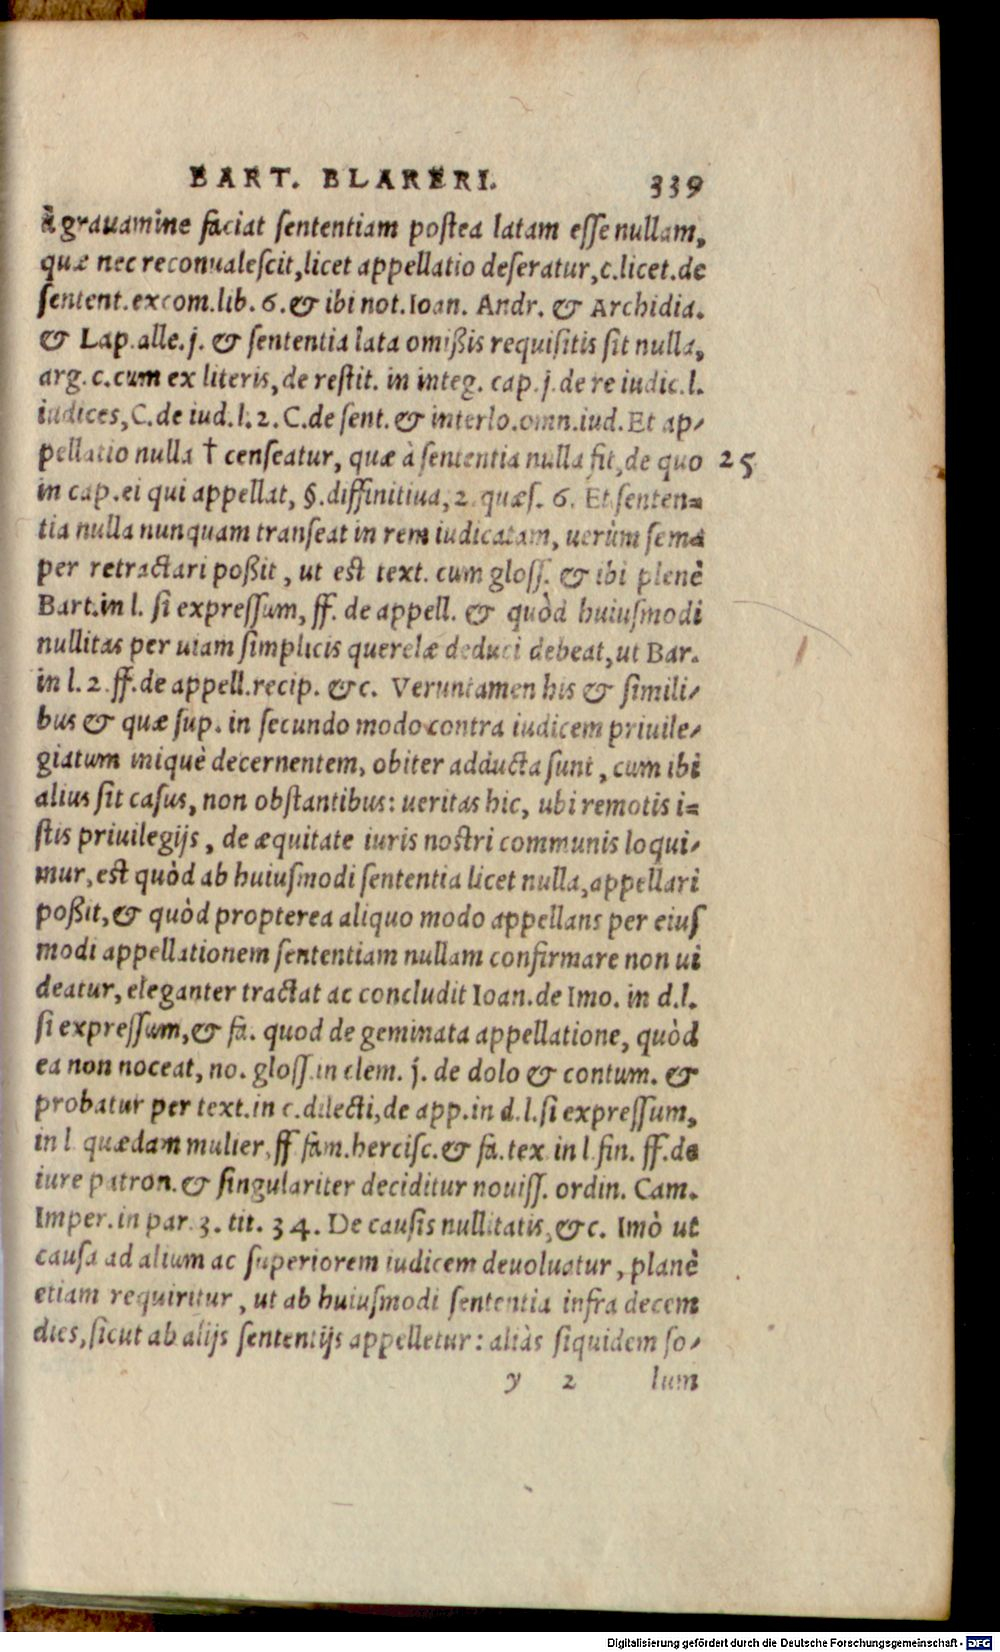 BART. BLARERI. 339
à grauamine faciat sententiam postea latam esse nullam,
quæ nec reconualescit, licet appellatio deseratur, c. licet. de
sentent. excom. lib. 6. & ibi not. Ioan. Andr. & Archidia.
& Lap. alle. j. & sententia lata omißis requisitis sit nulla,
arg. c. cum ex literis, de restit. in integ. cap. j. de re iudic. l.
iudices, C. de iud. l. 2. C. de sent. & interlo. omn. iud. Et ap-
pellatio nulla † censeatur, quæ à sententia nulla fit, de quo 25
in cap. ei qui appellat, §. diffinitiua, 2. quæs. 6. Et senten=
tia nulla nunquam transeat in rem iudicatam, uerùm sem=
per retractari poßit, ut est text. cum gloss. & ibi plenè
Bart. in l. si expressum, ff. de appell. & quòd huiusmodi
nullitas per uiam simplicis querelæ deduci debeat, ut Bar.
in l. 2. ff. de appell. recip. &c. Veruntamen his & simili-
bus & quæ sup. in secundo modo contra iudicem priuile-
giatum iniquè decernentem, obiter adducta sunt, cum ibi
alius sit casus, non obstantibus: ueritas hic, ubi remotis i=
stis priuilegijs, de æquitate iuris nostri communis loqui-
mur, est quòd ab huiusmodi sententia licet nulla, appellari
poßit, & quòd propterea aliquo modo appellans per eius
modi appellationem sententiam nullam confirmare non ui
deatur, eleganter tractat ac concludit Ioan. de Imo. in d. l.
si expressum, & fa. quod de geminata appellatione, quòd
ea non noceat, no. gloss. in clem. j. de dolo & contum. &
probatur per text. in c. dilecti, de app. in d. l. si expressum,
in l. quædam mulier, ff. fam. hercisc. & fa. tex. in l. fin. ff. de
iure patron. & singulariter deciditur nouiss. ordin. Cam.
Imper. in par. 3. tit. 34. De causis nullitatis, &c. Imò ut
causa ad alium ac superiorem iudicem deuoluatur, planè
etiam requiritur, ut ab huiusmodi sententia infra decem
dies, sicut ab alijs sententijs appelletur: aliàs siquidem so-
y 2 lum
Digitalisierung gefördert durch die Deutsche Forschungsgemeinschaft - DFG